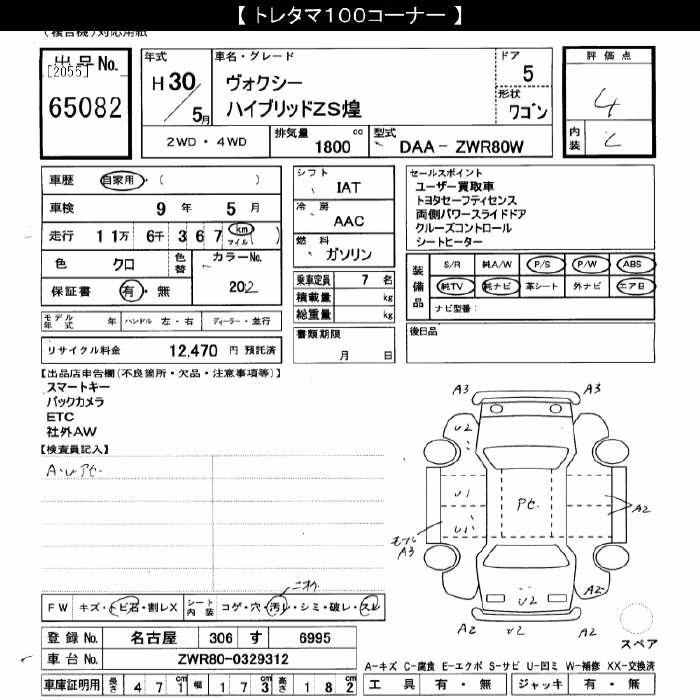 【 トレタマ100コーナー 】
(複合機)対応用紙
出品No.
[2055]
65082
年式
H30/5月
車名・グレード
ヴォクシー
ハイブリッドZS煌
ドア
5
形状
ワゴン
評価点
4
内装
C
2WD・4WD
排気量 1800 cc
型式 DAA- ZWR80W
車歴 自家用・( )
車検 9年 5月
走行 11万 6千 367 km マイル ( )
色 クロ 色替
カラーNo. 202
保証書 有・無
シフト
IAT
冷房
AAC
燃料
ガソリン
乗車定員 7名
積載量 kg
総重量 kg
書類期限
月 日
セールスポイント
ユーザー買取車
トヨタセーフティセンス
両側パワースライドドア
クルーズコントロール
シートヒーター
装備品
S/R 純A/W P/S P/W ABS
純TV 純ナビ 革シート 外ナビ エアB
ナビ型番:
モデル年式 年 ハンドル 左・右 ディーラー・並行
リサイクル料金 12,470 円 預託済
後日品
【出品店申告欄(不良箇所・欠品・注意事項等)】
スマートキー
バックカメラ
ETC
社外AW
【検査員記入】
A・U アセ
A3 A3
U2
U1
U1
Pセ
A2
モール
A3
A2
U2
A2 U2 A2
スペア
ニオイ
FW キズ・トビ石・割レX シート内装 コゲ・穴・汚レ・シミ・破レ・スレ
登録No. 名古屋 306 す 6995
車台No. ZWR80-0329312
車庫証明用 長さ 471cm 幅 173cm 高さ 182cm
A-キズ C-腐食 E-エクボ S-サビ U-凹ミ W-補修 XX-交換済
工具 有・無 ジャッキ 有・無